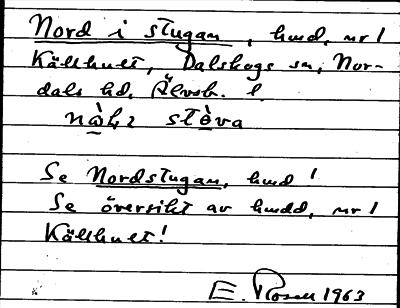 Nord i stugan, hmd, nr 1
Källhult, Dalskogs sn, Nor-
dals hd, Älvsb. l.
stè̱va
Se Nordstugan, hmd!
Se översikt av hmdd, nr 1
Källhult!
E. Rosell 1963